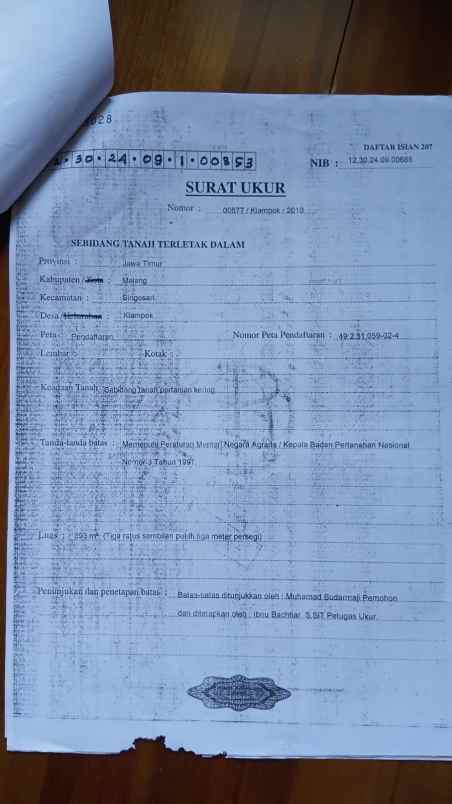 028
DAFTAR ISIAN 207
2.30.24.09.1.00853
NIB : 12.30.24.09.00688
SURAT UKUR
Nomor : 00677 / Klampok / 2010
SEBIDANG TANAH TERLETAK DALAM
Provinsi : Jawa Timur
Kabupaten / Kota : Malang
Kecamatan : Singosari
Desa / Kelurahan : Klampok
Peta : Pendaftaran Nomor Peta Pendaftaran : 49.2.31.059-02-4
Lembar : Kotak :
Keadaan Tanah : Sebidang tanah pertanian kering
Tanda-tanda batas : Memenuhi Peraturan Menteri Negara Agraria / Kepala Badan Pertanahan Nasional
Nomor 3 Tahun 1997
Luas : 393 m² (Tiga ratus sembilan puluh tiga meter persegi)
Penunjukan dan penetapan batas : Batas-batas ditunjukkan oleh : Muhamad Sudarmaji Pemohon
dan ditetapkan oleh : Ibnu Bachtiar, S.SIT Petugas Ukur